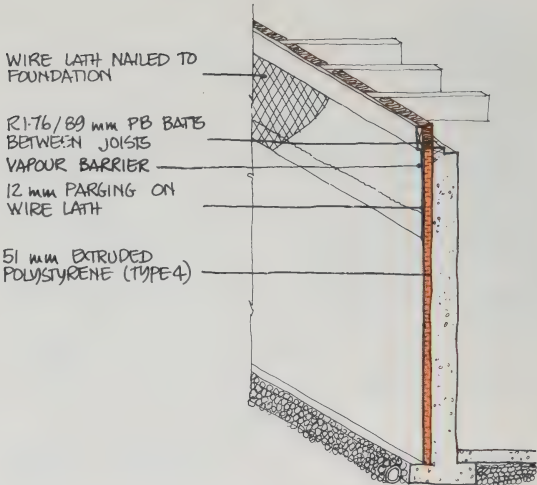 WIRE LATH NAILED TO
FOUNDATION
R1·76/89 mm PB BATTS
BETWEEN JOISTS
VAPOUR BARRIER
12 mm PARGING ON
WIRE LATH
51 mm EXTRUDED
POLYSTYRENE (TYPE 4)